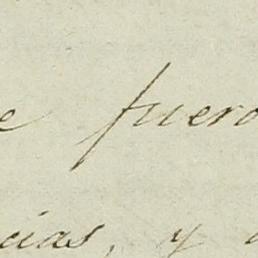 e fuero
cias, y